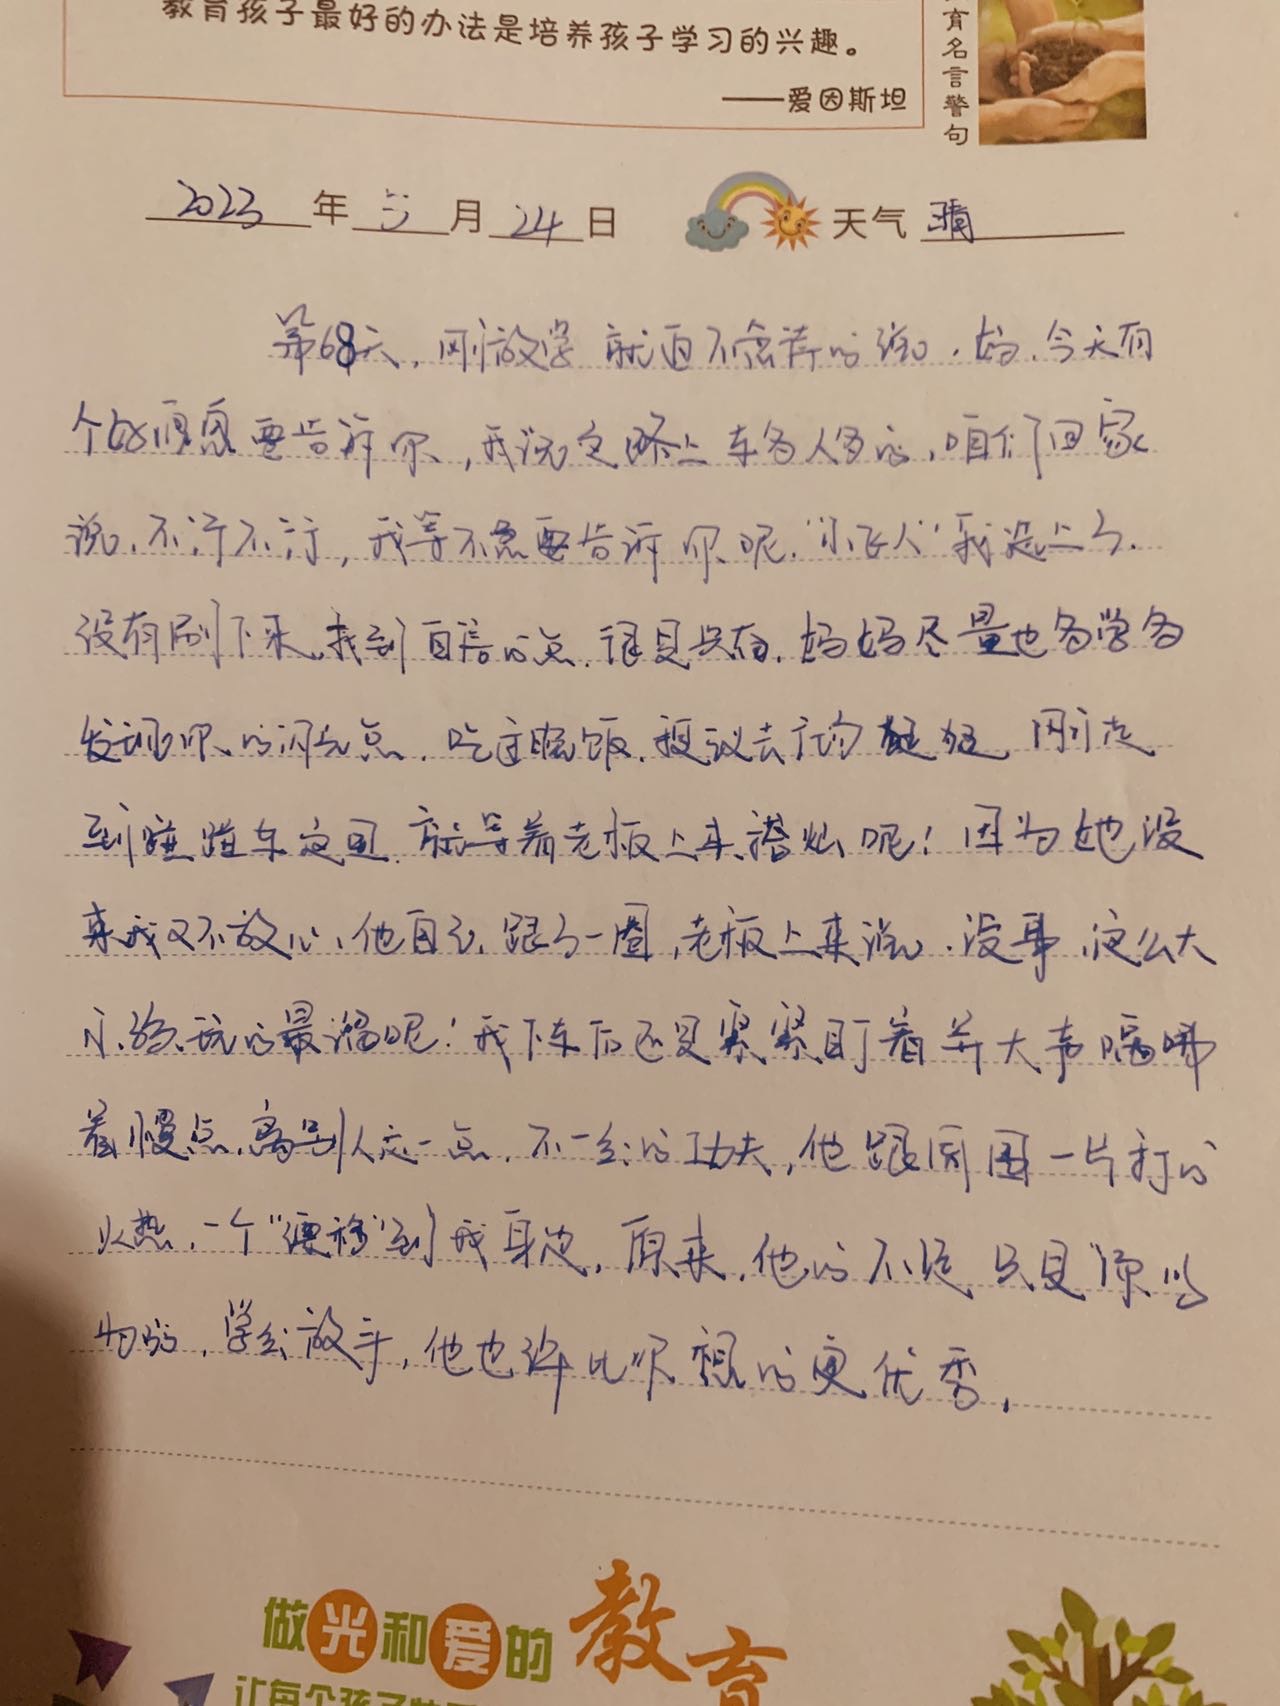 教育孩子最好的办法是培养孩子学习的兴趣。
——爱因斯坦
育名言警句
2023年5月24日 天气 晴
第68天，刚放学就迫不及待的说，妈，今天有
个好消息要告诉你，我说这路上车多人多的，咱们回家
说，不行不行，我等不急要告诉你呢，"小飞人"我选上了，
没有刷下来，找到自信的点，很是兴奋，妈妈尽量也多学多
发现你的闪光点，吃过晚饭，提议去广场 刚走
到碰碰车这里，就等着老板上来 呢！因为她没
来我又不放心，他自己跟了一圈，老板上来说，没事，这么大
小孩玩的最溜呢！我下车后还是紧紧盯着并大声嘱咐
着慢点，离别人远一点，不一会的功夫，他跟周围一片打的
火热，一个"漂移"到我身边，原来，他的不 只是你以
为的，学会放手，他也许比你想的更优秀，
做光和爱的教育
让每个孩子